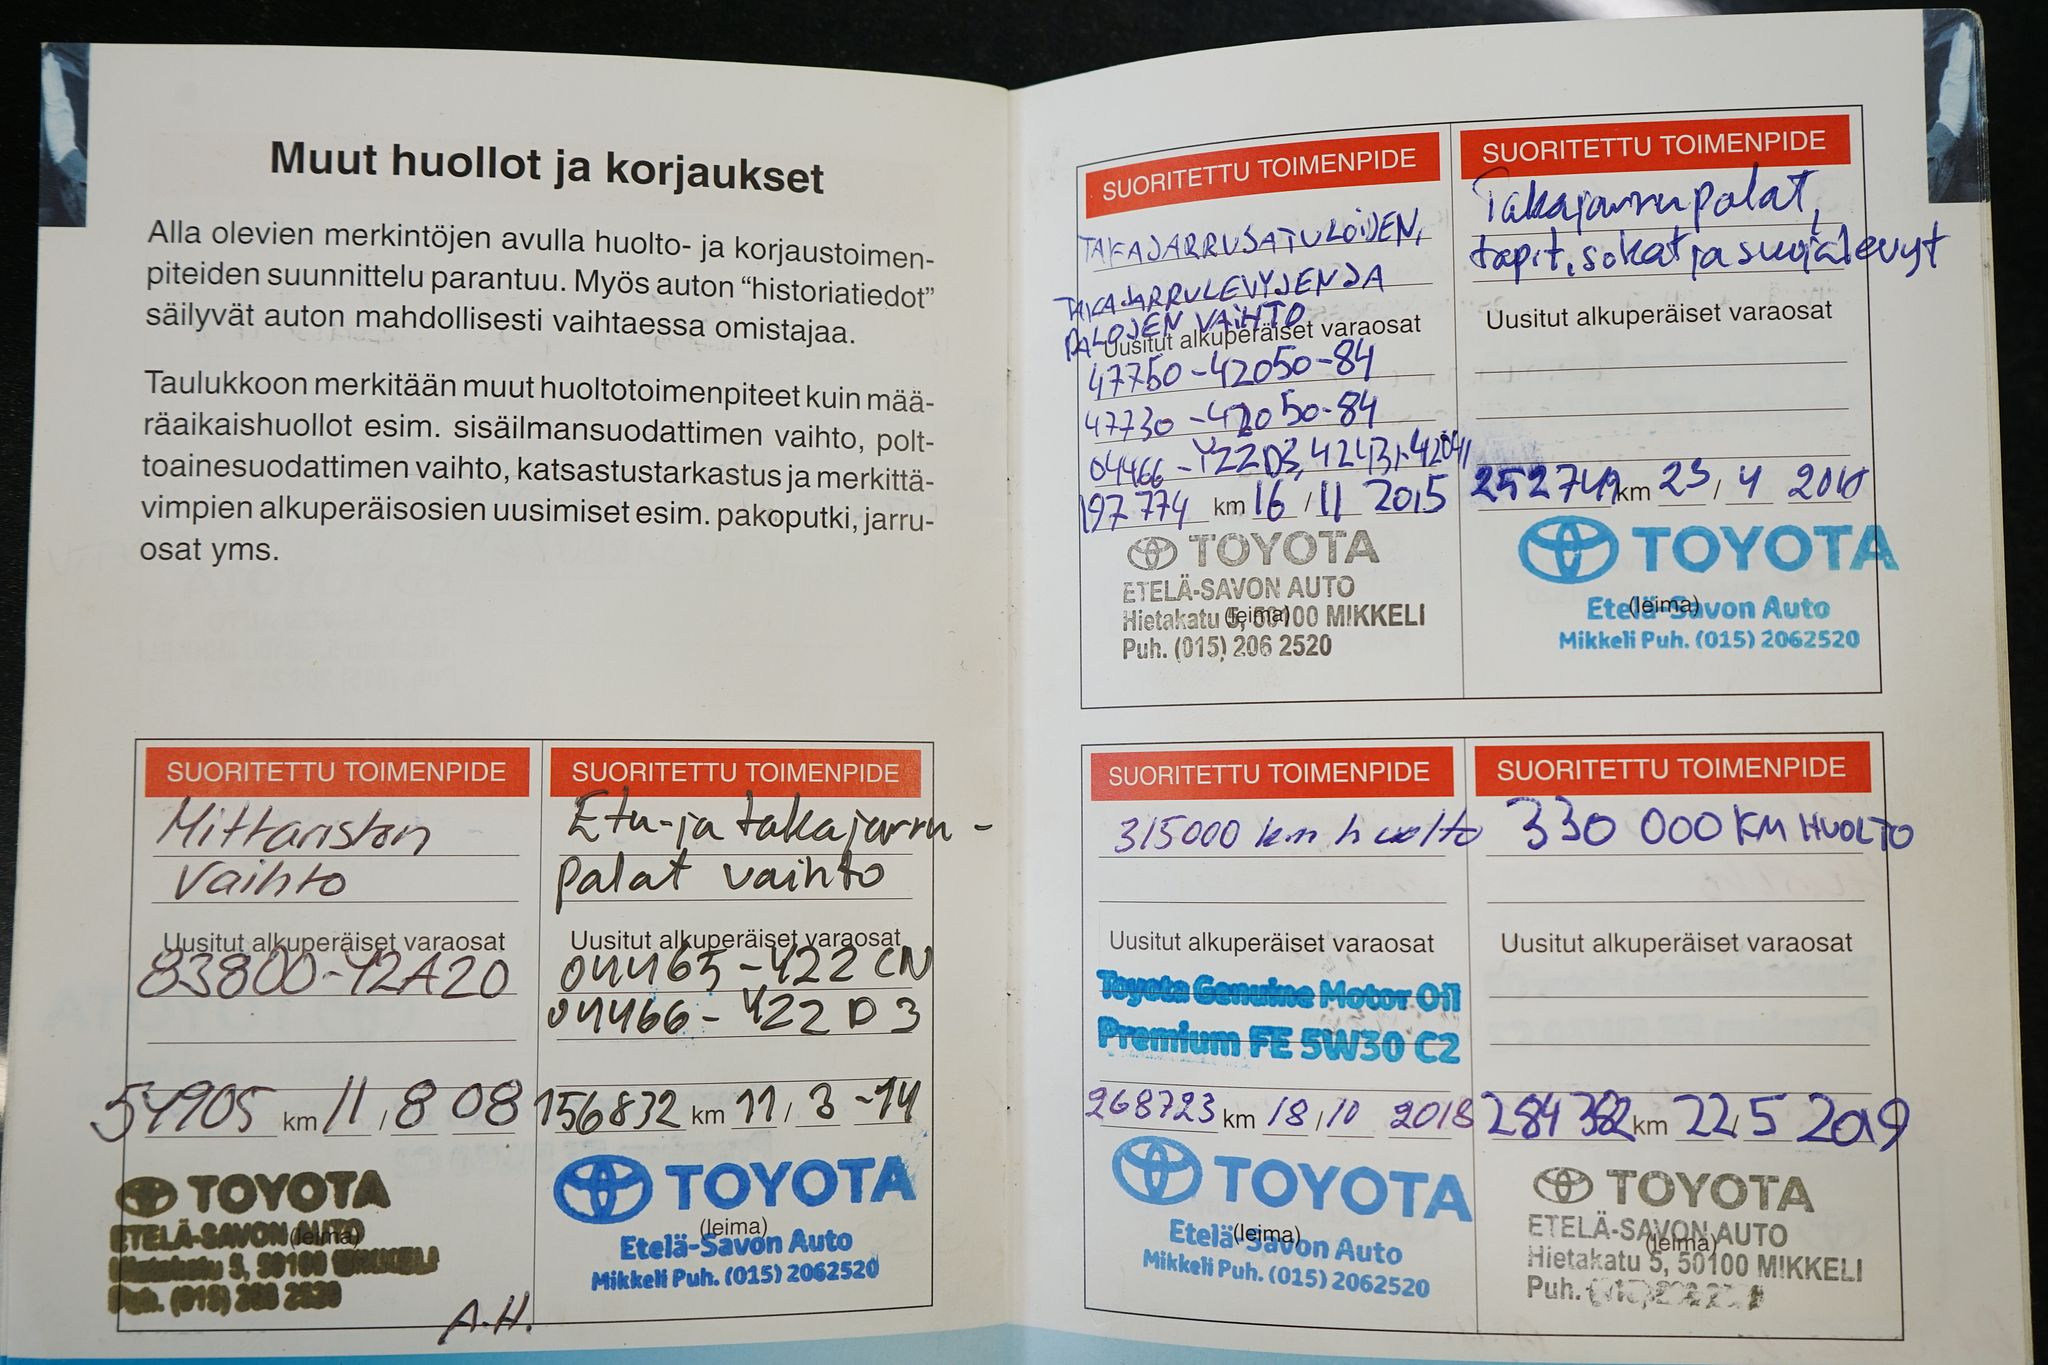 Muut huollot ja korjaukset
Alla olevien merkintöjen avulla huolto- ja korjaustoimen-
piteiden suunnittelu parantuu. Myös auton “historiatiedot”
säilyvät auton mahdollisesti vaihtaessa omistajaa.
Taulukkoon merkitään muut huoltotoimenpiteet kuin mää-
räaikaishuollot esim. sisäilmansuodattimen vaihto, polt-
toainesuodattimen vaihto, katsastustarkastus ja merkittä-
vimpien alkuperäisosien uusimiset esim. pakoputki, jarru-
osat yms.
SUORITETTU TOIMENPIDE
Mittariston
Vaihto
Uusitut alkuperäiset varaosat
83800-42A20
54905 km 11 / 8 08
TOYOTA
ETELÄ-SAVON AUTO
(leima)
Hietakatu 5, 50100 MIKKELI
Puh. (015) 206 2520
A.H.
SUORITETTU TOIMENPIDE
Etu- ja takajarru-
palat vaihto
Uusitut alkuperäiset varaosat
04465-YZZCN
04466-YZZD3
156832 km 11 / 3 -14
TOYOTA
(leima)
Etelä-Savon Auto
Mikkeli Puh. (015) 2062520
SUORITETTU TOIMENPIDE
TAKAJARRUSATULOIDEN,
TAKAJARRULEVYJEN JA
PALOJEN VAIHTO
Uusitut alkuperäiset varaosat
47750-42050-84
47730-42050-84
04466-YZZD3, 42431-42041
197774 km 16 / 11 2015
TOYOTA
ETELÄ-SAVON AUTO
(leima)
Hietakatu 5, 50100 MIKKELI
Puh. (015) 206 2520
SUORITETTU TOIMENPIDE
Takajarrupalat,
tapit, sokat ja suojalevyt
Uusitut alkuperäiset varaosat
252749 km 23 / 4
TOYOTA
(leima)
Etelä-Savon Auto
Mikkeli Puh. (015) 2062520
SUORITETTU TOIMENPIDE
315000 km huolto
Uusitut alkuperäiset varaosat
Toyota Genuine Motor Oil
Premium FE 5W30 C2
268723 km 18 / 10 2018
TOYOTA
(leima)
Etelä-Savon Auto
Mikkeli Puh. (015) 2062520
SUORITETTU TOIMENPIDE
330 000 KM HUOLTO
Uusitut alkuperäiset varaosat
284382 km 22 / 5 2019
TOYOTA
ETELÄ-SAVON AUTO
(leima)
Hietakatu 5, 50100 MIKKELI
Puh.